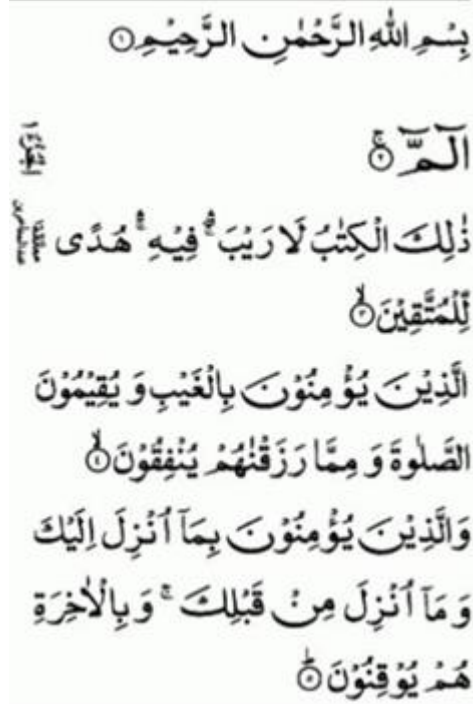 بِسْمِ اللّٰهِ الرَّحْمٰنِ الرَّحِيْمِ ۝۱
الٓمّٓ ۚ۝۲
الجزء ۱
ذٰلِكَ الْكِتٰبُ لَا رَيْبَ ۛۖ فِيْهِ ۛۚ هُدًى
لِّلْمُتَّقِيْنَ ۙ۝۳
الَّذِيْنَ يُؤْمِنُوْنَ بِالْغَيْبِ وَ يُقِيْمُوْنَ
الصَّلٰوةَ وَ مِمَّا رَزَقْنٰهُمْ يُنْفِقُوْنَ ۙ۝۴
وَالَّذِيْنَ يُؤْمِنُوْنَ بِمَاۤ اُنْزِلَ اِلَيْكَ
وَ مَاۤ اُنْزِلَ مِنْ قَبْلِكَ ۚ وَ بِالْاٰخِرَةِ
هُمْ يُوْقِنُوْنَ ؕ۝۵